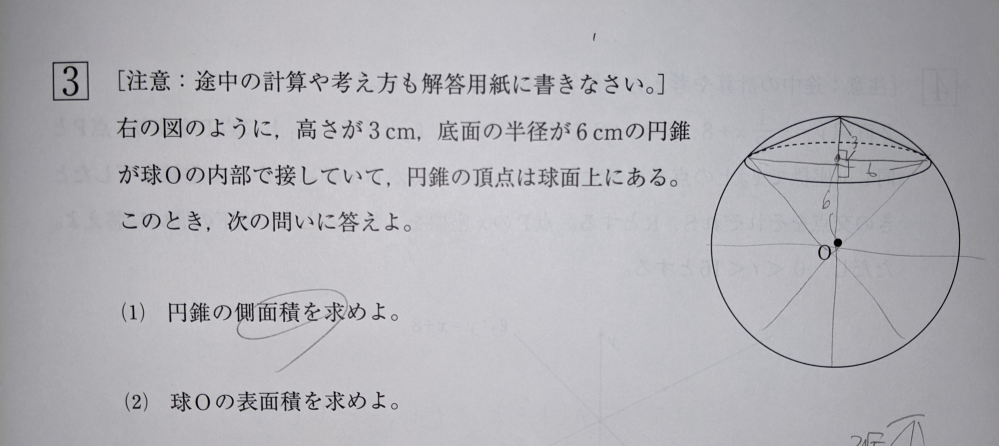 3 [注意:途中の計算や考え方も解答用紙に書きなさい。]
右の図のように,高さが3cm,底面の半径が6cmの円錐
が球Oの内部で接していて,円錐の頂点は球面上にある。
このとき,次の問いに答えよ。
3
6
6
O
(1) 円錐の側面積を求めよ。
(2) 球Oの表面積を求めよ。